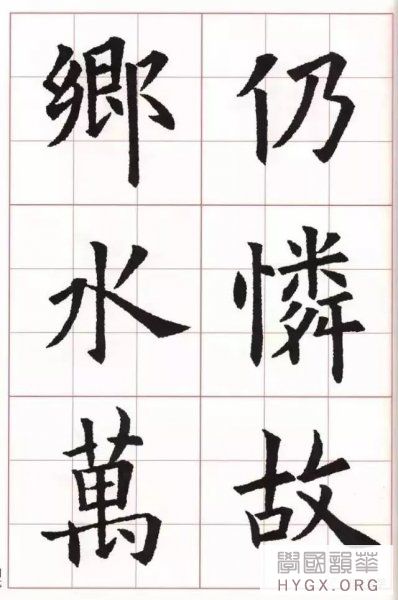 仍憐故
鄉水萬
華韻國學
HYGX.ORG